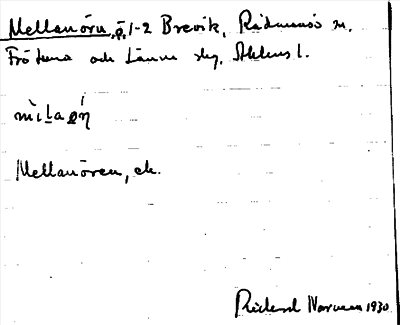 Mellanörn, ö, 1-2 Brevik, Rådmansö sn.
Frötuna och Länna skg, Sthlms l.
mìlaǫ́ŋ
Mellanören, ek.
Rickard Norman 1930